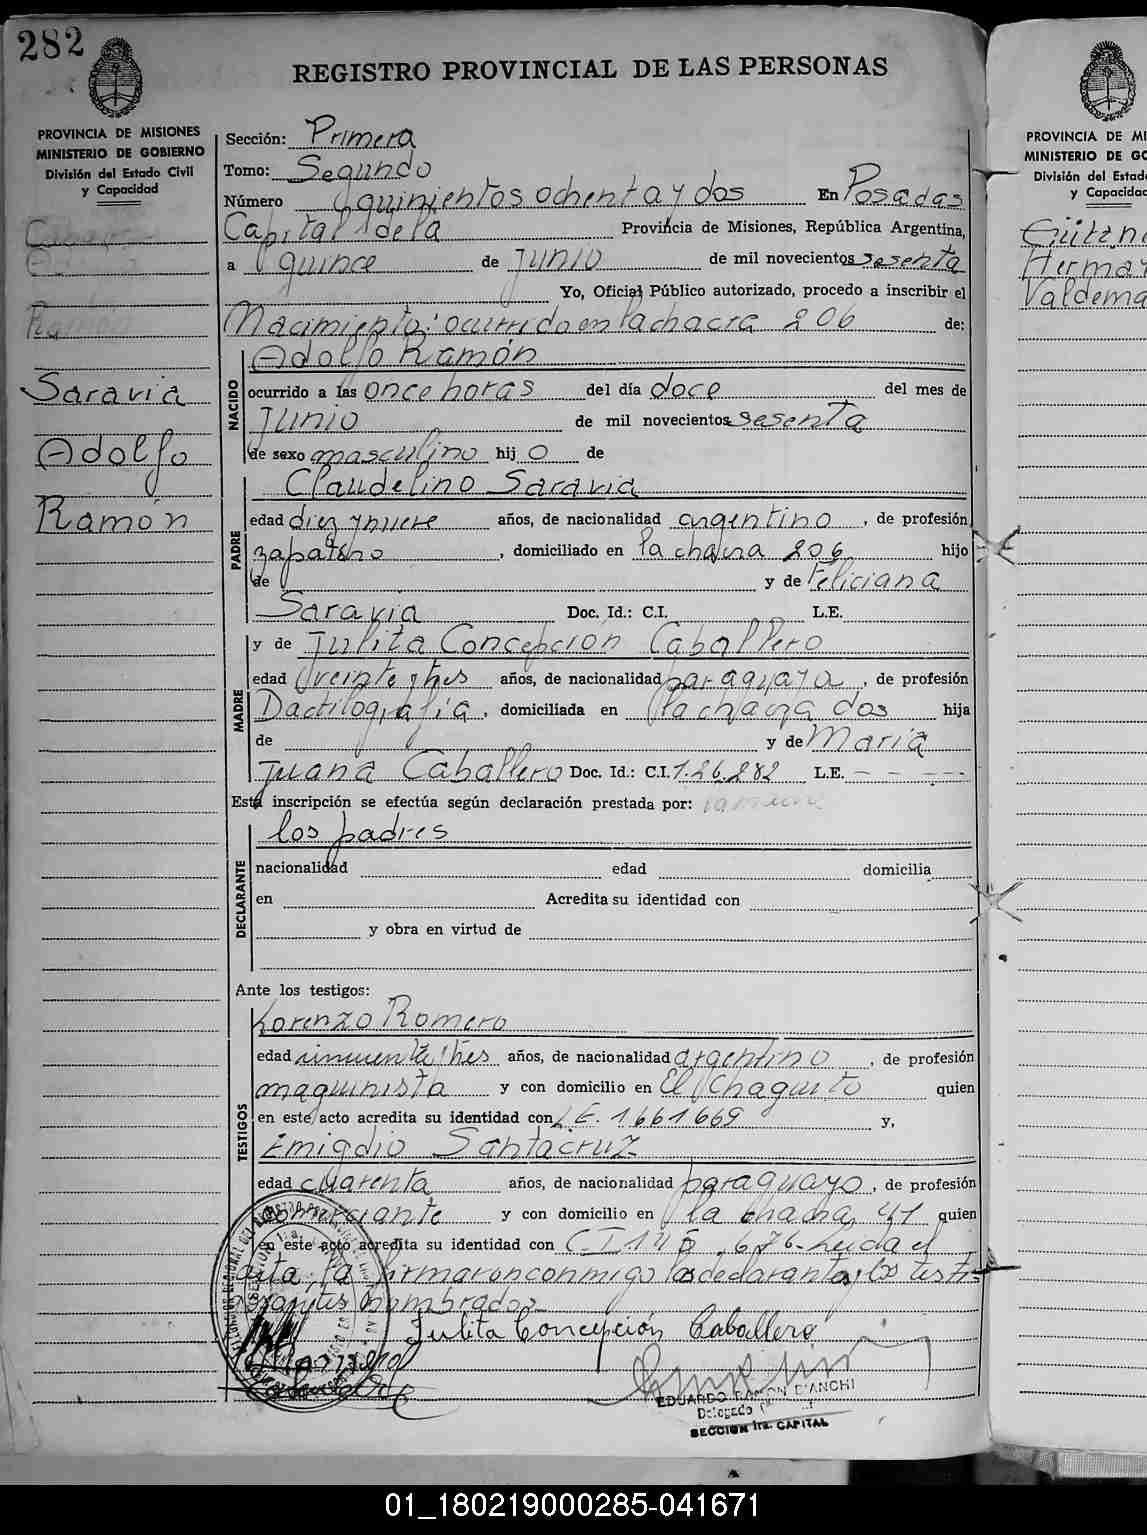 282
REGISTRO PROVINCIAL DE LAS PERSONAS
PROVINCIA DE MISIONES
MINISTERIO DE GOBIERNO
División del Estado Civil
y Capacidad
Ramón
Saravia
Adolfo
Ramón
Sección: Primera
Tomo: Segundo
Número quinientos ochenta y dos En Posadas
Capital de la Provincia de Misiones, República Argentina,
a quince de junio de mil novecientos sesenta
Yo, Oficial Público autorizado, procedo a inscribir el
Nacimiento: ocurrido en la chacra 206 de:
NACIDO
Adolfo Ramón
ocurrido a las once horas del día doce del mes de
junio de mil novecientos sesenta
de sexo masculino hijo de
PADRE
Claudelino Saravia
edad diez y nueve años, de nacionalidad argentino, de profesión
zapatero, domiciliado en la chacra 206 hijo
de y de Feliciana
Saravia Doc. Id.: C.I. L.E.
MADRE
y de Julita Concepcion Caballero
edad veinte y tres años, de nacionalidad paraguaya, de profesión
Dactilografía, domiciliada en la chacra dos hija
de y de Maria
Juana Caballero Doc. Id.: C.I. 1.26.282 L.E. - - - - -
Esta inscripción se efectúa según declaración prestada por:
DECLARANTE
los padres
nacionalidad edad domicilia
en Acredita su identidad con
y obra en virtud de
Ante los testigos:
TESTIGOS
Lorenzo Romero
edad cincuenta y tres años, de nacionalidad argentino, de profesión
maquinista y con domicilio en El Chaquito quien
en este acto acredita su identidad con L.E. 1661669 y,
Emigdio Santacruz
edad cuarenta años, de nacionalidad paraguayo, de profesión
comerciante y con domicilio en la chacra 41 quien
en este acto acredita su identidad con C.I. 676- Leida el
acta, la firmaron conmigo los declarantes y los testi-
nombrados-
Julita Concepción Caballero
EDUARDO RAMON BIANCHI
Delegado
SECCION 1ra. CAPITAL
PROVINCIA DE MI
MINISTERIO DE GO
División del Estad
y Capacidad
Hermay
Valdema
01_180219000285-041671